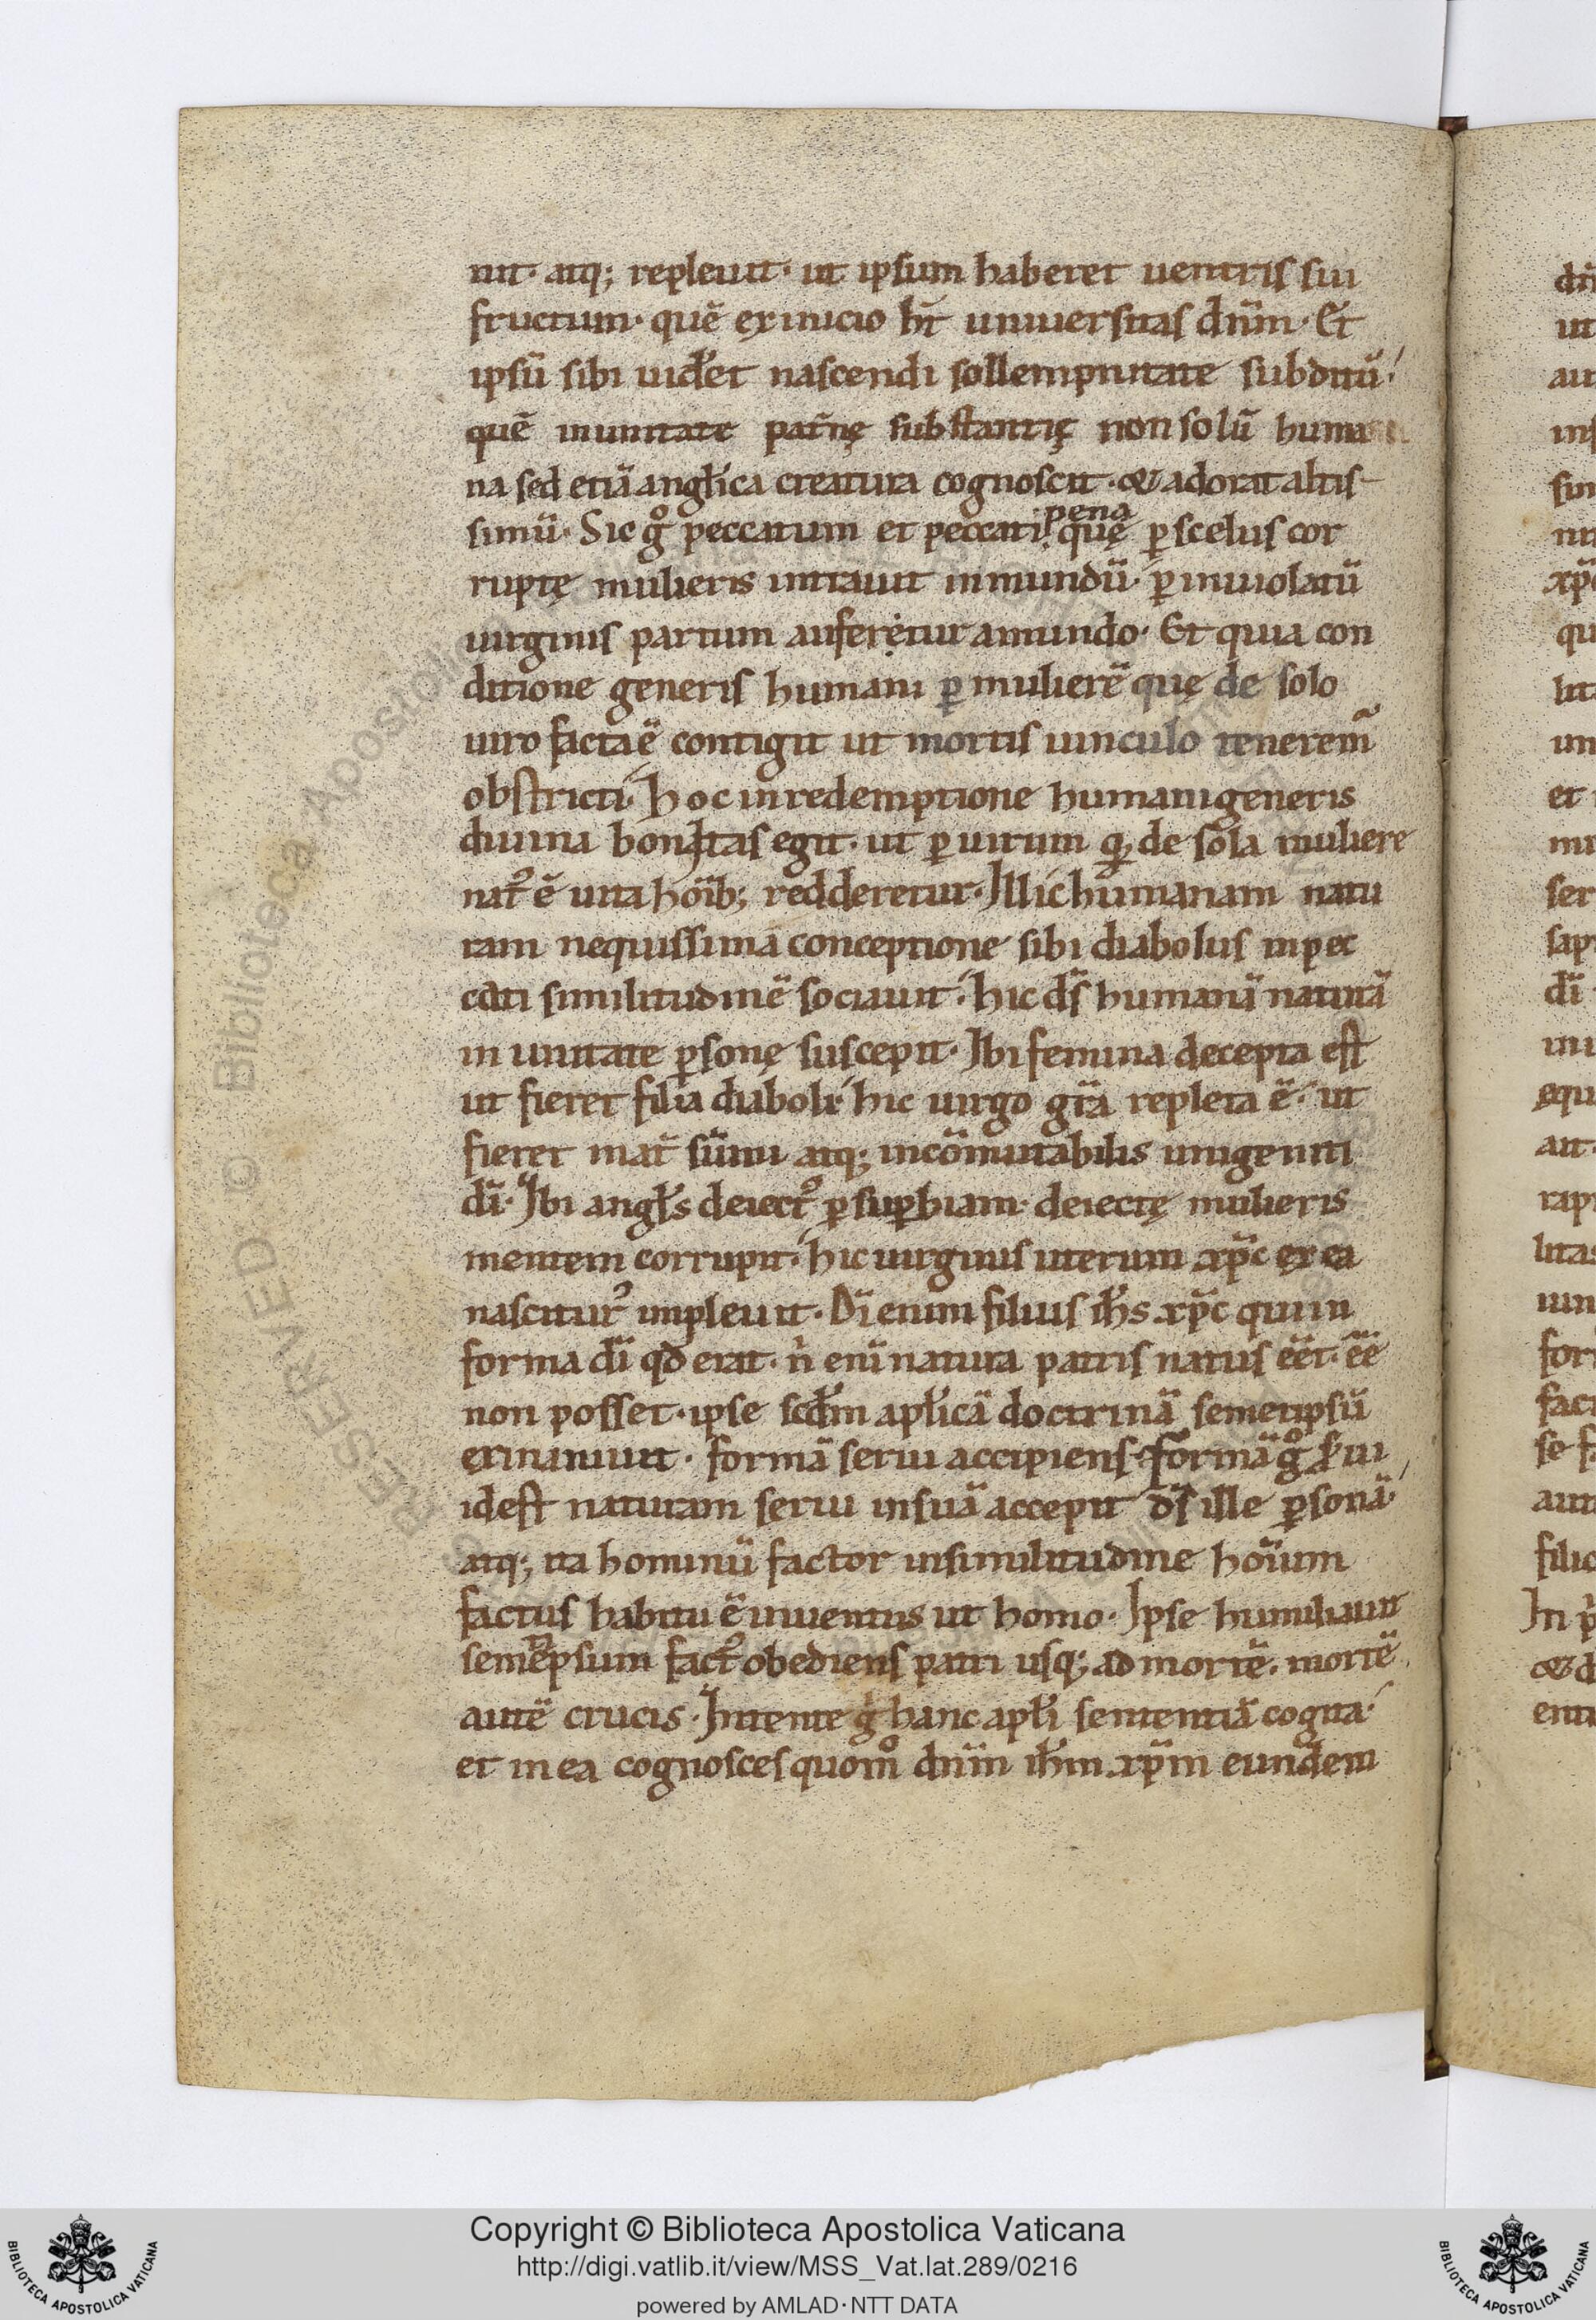 nit· atq; repleuit· ut ipsum haberet uentris sui
fructum· quē ex inicio ht̄ uniuersitas dn̄m· Et
ipsū sibi uid̄et nascendi sollempnitate subditū·
quē in unitate pat̄nę substantię non solū huma
na sed etiā angl̄ica creatura cognoscit· & adorat altis
simū· Sic gͦ peccatum et peccati pena quę ꝑ scelus cor
ruptę mulieris intrauit in mundū· ꝑ inuiolatū
uirginis partum auferetur a mundo· Et quia con
ditione generis humani ꝑ mulierē quę de solo
uiro facta ē contigit ut mortis uinculo teneremr̃
obstricti· hoc in redemptione humani generis
diuina bonitas egit· ut ꝑ uirum q̨ de sola muliere
nat᷒ ē uita hōib; redderetur· Illic humanam natu
ram nequissima conceptione sibi diabolus in pec
cati similitudinē sociauit· hic d̄s humanā naturā
in unitate ꝑsonę suscepit· Ibi femina decepta est
ut fieret filia diaboli· hic uirgo gr̄a repleta ē· ut
fieret mat̄ sūmi atq; incōmutabilis unigeniti
dī· Ibi angl̄s deiect᷒ ꝑ suꝑbiam· deiectę mulieris
mentem corrupit· hic uirginis uterum xp̄c ex ea
nascitur᷒ impleuit· Dī enim filius ih̄s xp̄c qui in
forma dī qd̄ erat· n̄ enī natura patris natus ēēt· ēē
non posset· ipse scd̄m apl̄icā doctrinā semetipsū
exinaniuit· formā serui accipiens· formā gͦ s̄ui
idest naturam serui in suā accepit d̄s ille ꝑsonā·
atq; ita hominū factor in similitudine hōium
factus habitu ē inuentus ut homo· Ipse humiliauit
semetipsum fact᷒ obediens patri usq; ad mortē· mortē
autē crucis· Intente gͦ hanc apl̄i sententiā cogita·
et in ea cognosces quomͦ dn̄m ih̄m xp̄m eundem
dn̄
ut
au
ins
sim
xp̄
qu
lit
et
ser
sap
dī
equ
ait
rap
litas
for
fact
se f
aut
filio
In p̄
& d
enti
RESERVED © Biblioteca Apostolica
Copyright © Biblioteca Apostolica Vaticana
http://digi.vatlib.it/view/MSS_Vat.lat.289/0216
powered by AMLAD·NTT DATA
BIBLIOTECA APOSTOLICA VATICANA
BIBLIOTECA APOSTOLICA VATICANA